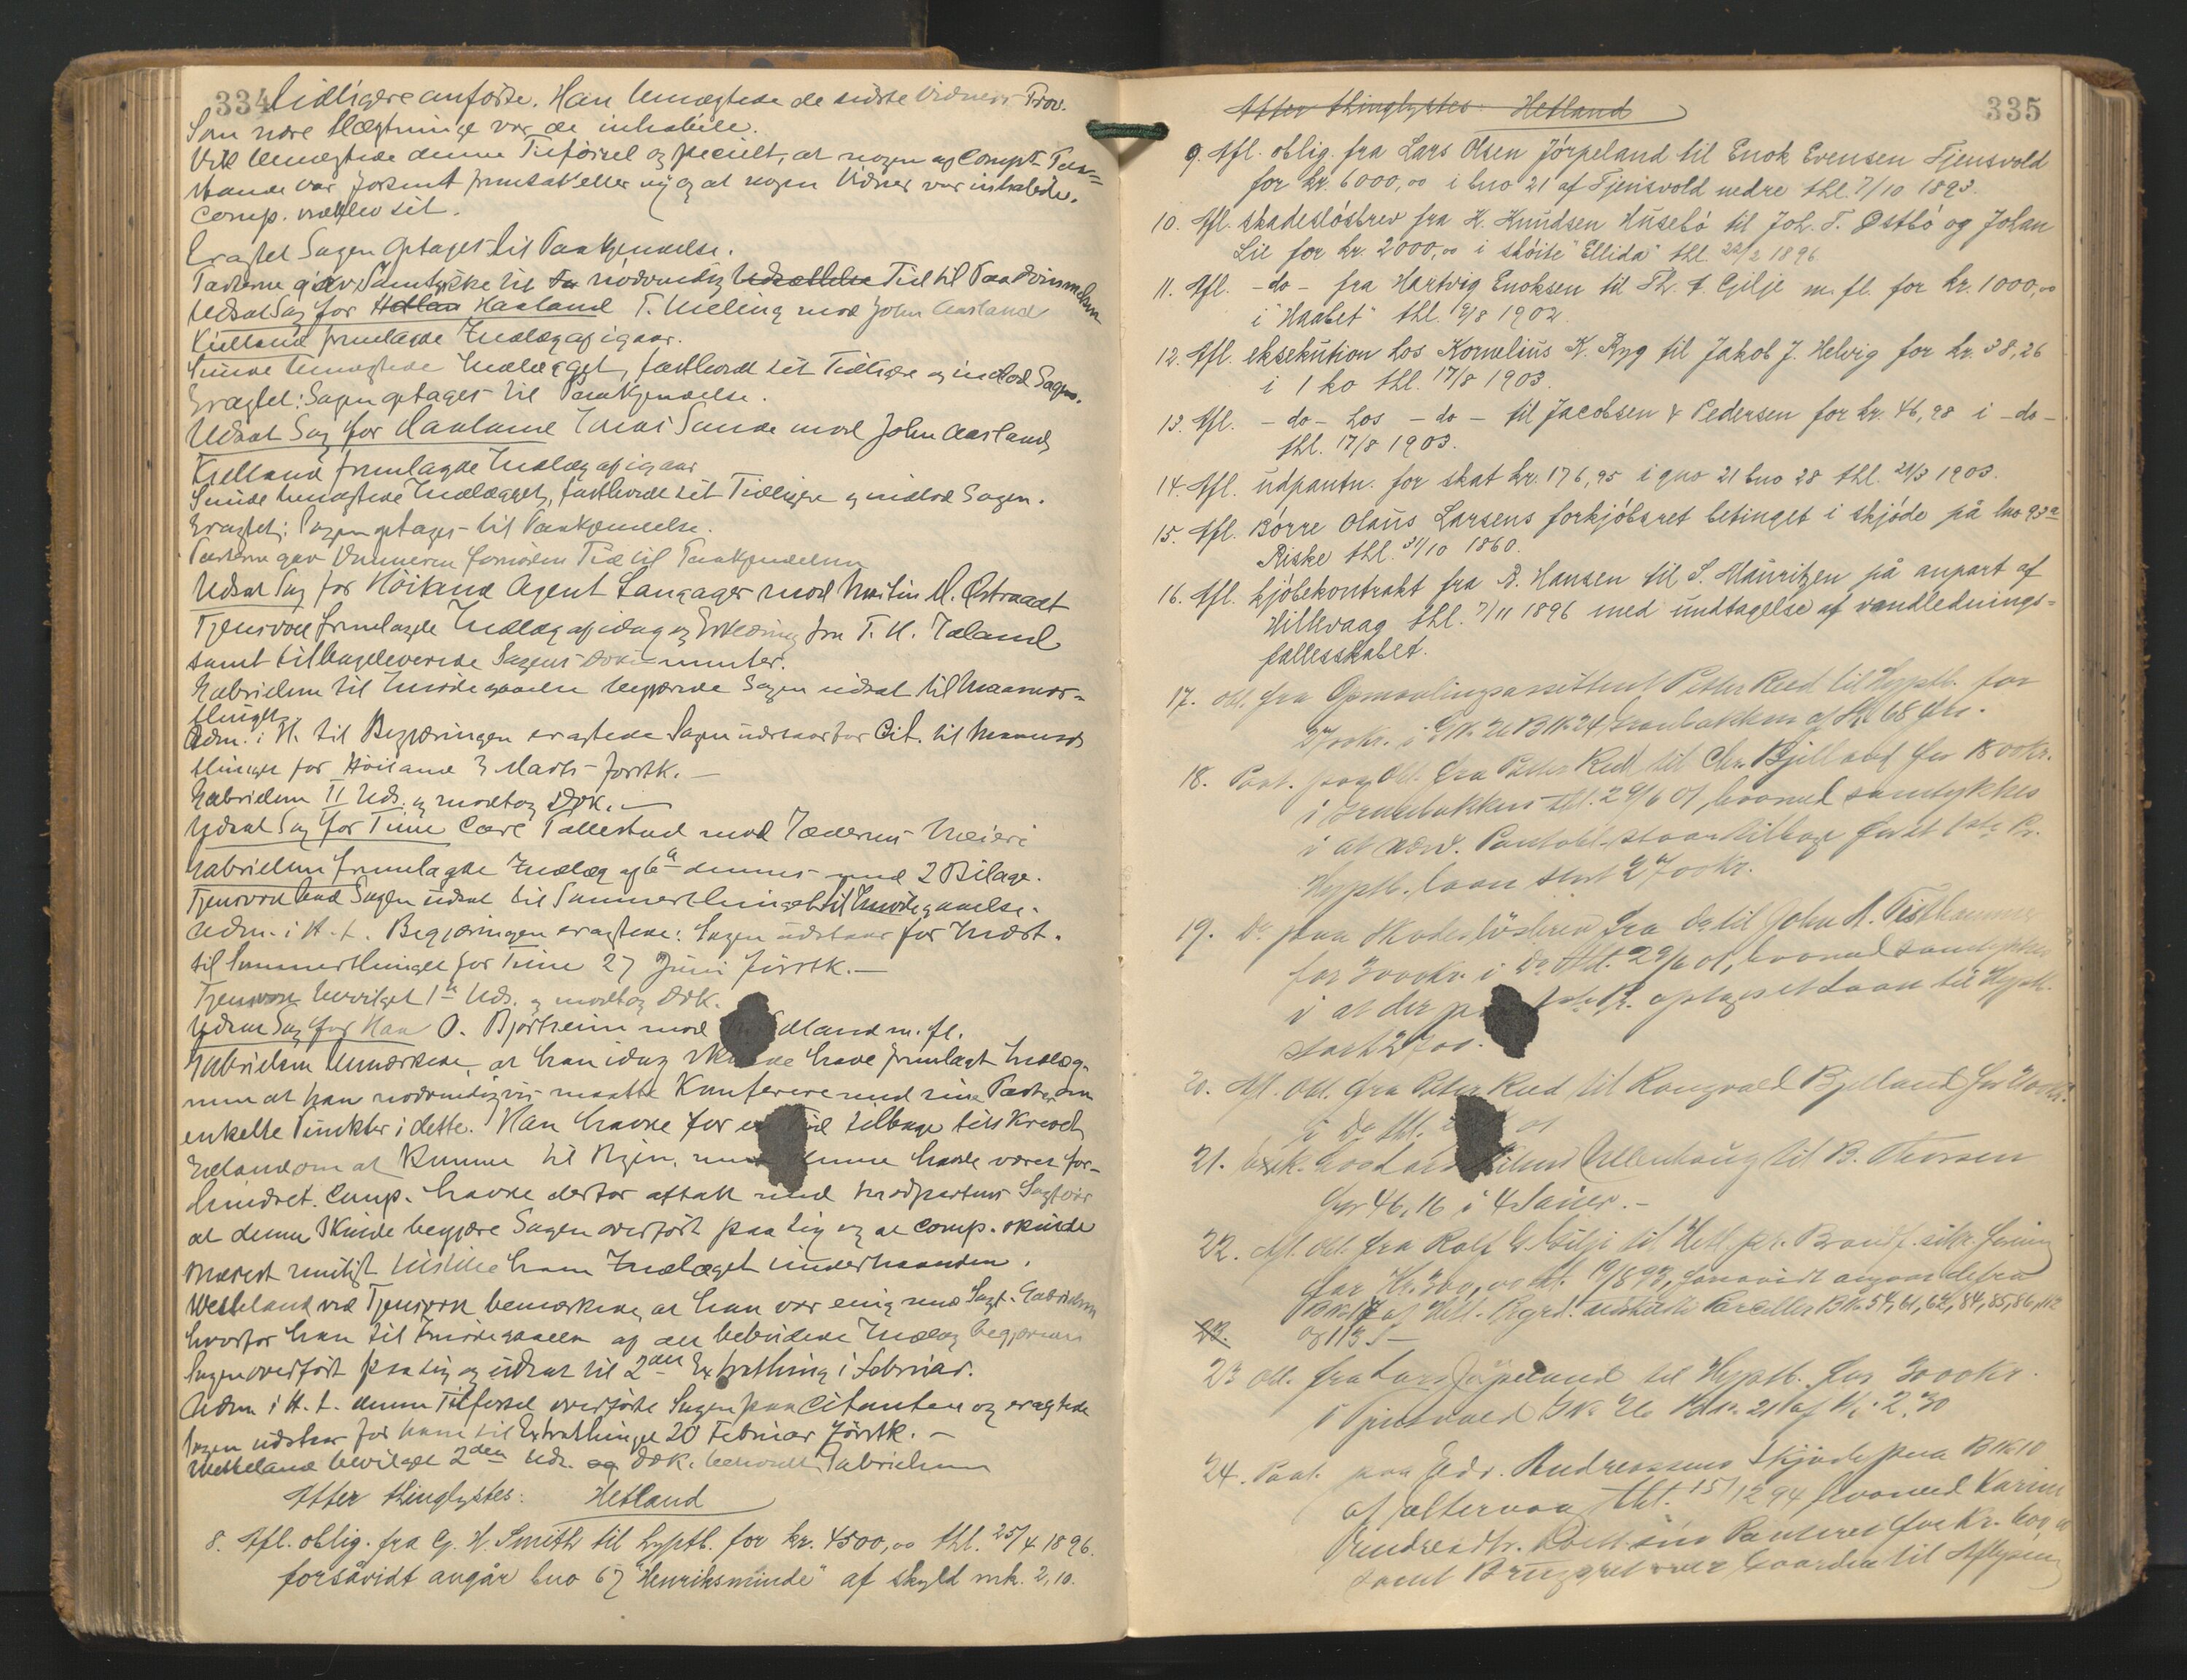 334
tidligere anførte. Han benægtede de sidste Vidners Prov.
Som nære Slægtninge var de inhabile.
benægtede denne Tilførsel og specielt, at nogen af Compt. Paa-
stande var forsent fremsat eller ny og at nogen Vidner var inhabile.
Comp. vedblev sit.
Eragtet Sagen optages til Paakjendelse.
Parterne gav Samtykke til nødvendig Udsættelse Tid til Paadømmelsen
Udsat Sag for Hetlan Haaland T. Meling mod John Aasland
Kielland fremlagde Indlæg af igaar.
Sunde benægtede Indlægget, fastholdt sit Tidligere og indlod Sagen.
Eragtet: Sagen optages til Paakjendelse.
Udsat Sag for Haaland Sunde mod John Aasland
Kielland fremlagde Indlæg af igaar
Sunde benægtede Indlægget, fastholdt sit Tidligere og indlod Sagen.
Eragtet: Sagen optages til Paakjendelse.
Parterne gav Dommeren fornøden Tid til Paakjendelsen
Udsat Sag for Høiland Agent Langager mod Martin M. Østraadt
Tjensvold fremlagde Indlæg af idag og Erklæring fra T. H. Jaland
samt tilbageleverede Sagens Dokumenter.
Gabrielsen til Imødegaaelse begjærede Sagen udsat til Maaneds-
thinget.
Adm. i H. til Begjæringen eragtede Sagen udstaar for Cit. til Maaneds
thinget for Høiland 3 Marts førstk. —
Gabrielsen II Uds. og modtog Dok. —
Udsat Sag for Time Carl Tallestad mod Jæderens Meieri
Gabrielsen fremlagde Indlæg af 6te dennes med 2 Bilage.
Tjensvold bad Sagen udsat til Sommerthinget til Imødegaaelse.
Adm. i H. t. Begjæringen eragtede: Sagen udstaar for Indst.
til Sommerthinget for Time 27 Juni førstk. —
Tjensvold bevilget 1ste Uds. og modtog Dok.
Udsat Sag for Haa O. Bjorheim mod dland m. fl.
Gabrielsen bemærkede, at han idag skulde have fremlagt Indlæg,
men at han nødvendigvis maatte Konferere med sine Parter om
enkelte Punkter i dette. Han havde for en Tid tilbage tilskrevet
Edland om at Komme til Byen, men denne havde været for-
hindret. Comp. havde derfor aftalt med Modpartens Sagfører
at denne skulde begjære Sagen overført paa sig og at Comp. skulde
snarest muligt tilstille ham Indlæget underhaanden.
Wetteland ved Tjensvold bemærkede, at han var enig med Sagf. Gabrielsen
hvorfor han til Imødegaaelse af det bebudede Indlæg begjærede
Sagen overført paa sig og udsat til 2den Extrathing i Februar.
Adm. i H. t. denne Tilførsel overførte Sagen paa Citanten og eragtede
Sagen udstaar for ham til Extrathinget 20 Februar førstk. —
Wetteland bevilget 2den Uds. og Dok. beholdt Gabrielsen
Atter thinglystes: Hetland
8. Afl. oblig. fra G. H. Smith til hyptb. for kr. 4500,00 thl. 25/4 1896.
forsåvidt angår bno 67 "Henriksminde" af skyld mk. 2,10.
335
Atter thinglystes: Hetland
9. Afl. oblig. fra Lars Olsen Jörpeland til Enok Evensen Tjensvold
for kr. 6000,00 i bno 21 af Tjensvold nedre thl. 7/10 1893.
10. Afl. skadeslösbrev fra K. Knudsen Husebö til Joh. T. Østbö og Johan
Lie for kr. 2000,00 i skøite "Ellida" thl. 22/2 1896
11. Afl. - do - fra Hartvig Enoksen til Th. t. Gilje m. fl. for kr. 1000,00
i "Haabet" thl. 12/8 1902.
12. Afl. eksekution hos Kornelius K. Ryg til Jakob J. Helvig for kr. 38,26
i 1 ko thl. 17/8 1903.
13. Afl. - do - hos - do - til Jacobsen & Pedersen for kr. 46,98 i - do -
thl. 17/8 1903.
14. Afl. udpantn. for skat kr. 176,95 i gno 21 bno 28 thl. 21/3 1903.
15. Afl. Börre Olaus Larsens forkjöbsret betinget i skjöde på lno 93a
Riske thl. 31/10 1860.
16. Afl. kjöbekontrakt fra R. Hansen til S. Mauritzen på anpart af
Hillevaag thl. 7/11 1896 med undtagelse af vandlednings-
fællesskabet.
17. Obl. fra Opmaalingsassistent Petter Reed til Hyptb. for
2700kr. i GN. 21 BN. 24 Granbakken af Sk. 68 Øre.
18. Paat. paa Obl. fra Petter Reed til Chr. Bjelland for 1800kr.
i Granbakken thl. 29/6 01, hvorved samtykkes
i at nævn. Pantobl. staar tilbage for et 1ste Pr.
Hyptb. laan stort 2700kr.
19. Do paa Skadeslösbrev fra do til John A. Tisthammer
for 3000kr. i Do thl. 29/6 01, hvorved samtykkes
i at der paa 1ste Pr. optages et Laan til Hyptb.
stort 2700.
20. Afl. Obl. fra Petter Reed til Rangvald Bjelland for
i Do thl. 01
21. Ullenhaug til B. Thorsen
for 46,16 i 4 Sauer. -
22. Afl. Obl. fra Rolf G. Gilje til Hetl. pr. Brandf. sikr. forening
for Kr. 300,00 thl. 19/8 93, forsaavidt angaar de fra
BN. 17 af Hetl. Prgrd. udskilte Parceller BN. 54, 61, 62, 84, 85, 86, 112
23. og 113. -
23 Obl. fra Lars Jöpeland til Hyptb. for 3000kr.
i Tjensvold GN. 26 BN. 21 af Sk. 2.30
24. Paat. paa Edv. Andreassens Skjøde paa BN 10
af thl. 15/12 94 hvorved Karine
sin Panteret for Kr. 600,00
samt Brugsret over Gaarden til Aflysning